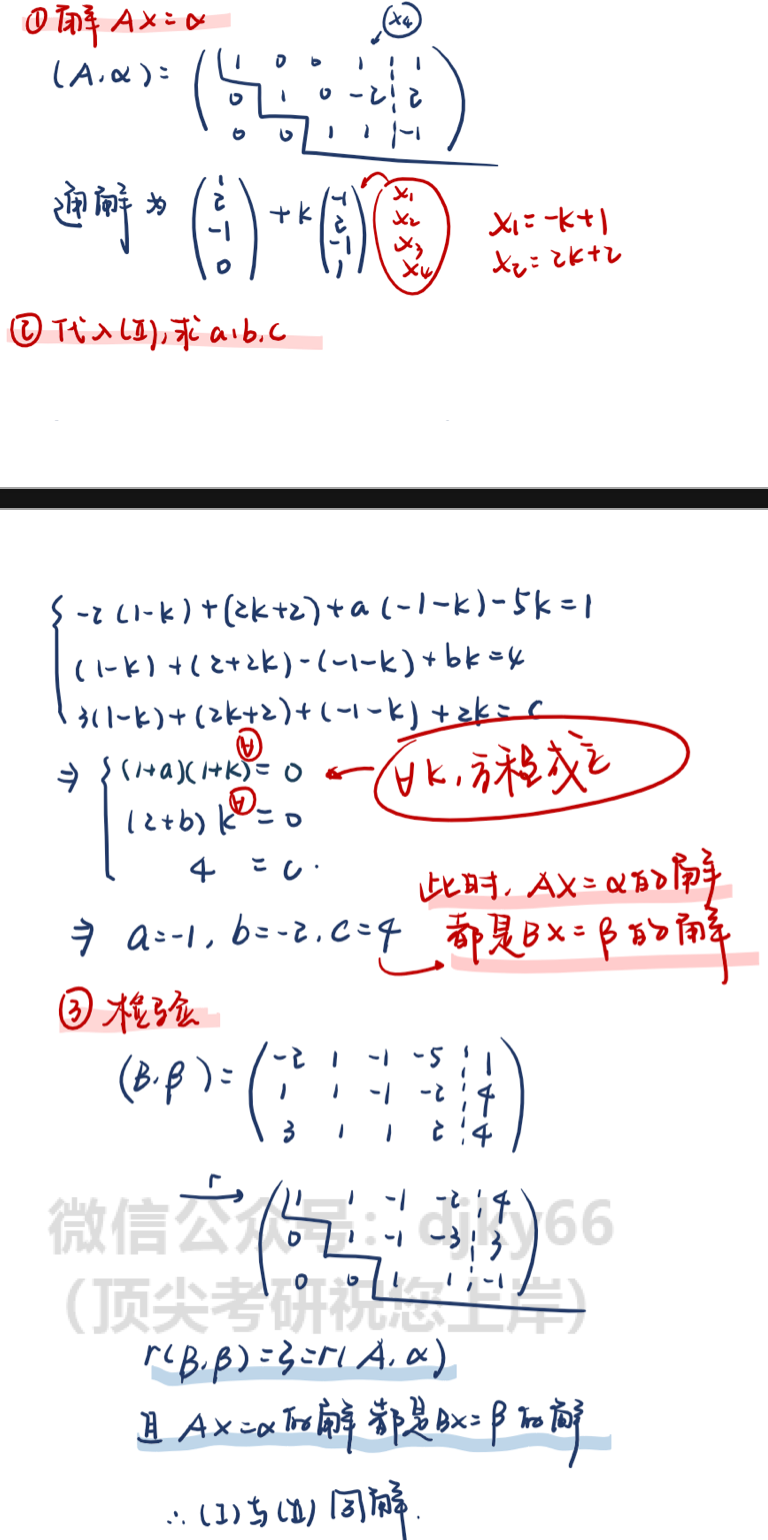 ① 解 AX=α
x₄
(A,α)= ( 1 0 0 1 ¦ 1
0 1 0 -2 ¦ 2
0 0 1 1 ¦ -1 )
通解为 ( 1 2 -1 0 ) + k ( -1 2 -1 1 ) x₁ x₂ x₃ x₄
x₁=-k+1
x₂=2k+2
② 代入(Ⅱ),求a,b,c
{ -2(1-k)+(2k+2)+a(-1-k)-5k=1
(1-k)+(2+2k)-(-1-k)+bk=4
3(1-k)+(2k+2)+(-1-k)+2k=c
⇒ { (1+a)(1+k)=0 ∀
(2+b)k=0 ∀
4 = c.
∀k,方程成立
⇒ a=-1, b=-2, c=4
此时, AX=α的解
都是BX=β的解
③ 检验
(B,β)= ( -2 1 -1 -5 ¦ 1
1 1 -1 -2 ¦ 4
3 1 1 2 ¦ 4 )
r→ ( 1 1 -1 -2 ¦ 4
0 1 -1 -3 ¦ 3
0 0 1 1 ¦ -1 )
微信公众号: djky66
(顶尖考研祝您上岸)
r(B,β)=3=r(A,α)
且 AX=α的解都是BX=β的解
∴(Ⅰ)与(Ⅱ)同解.